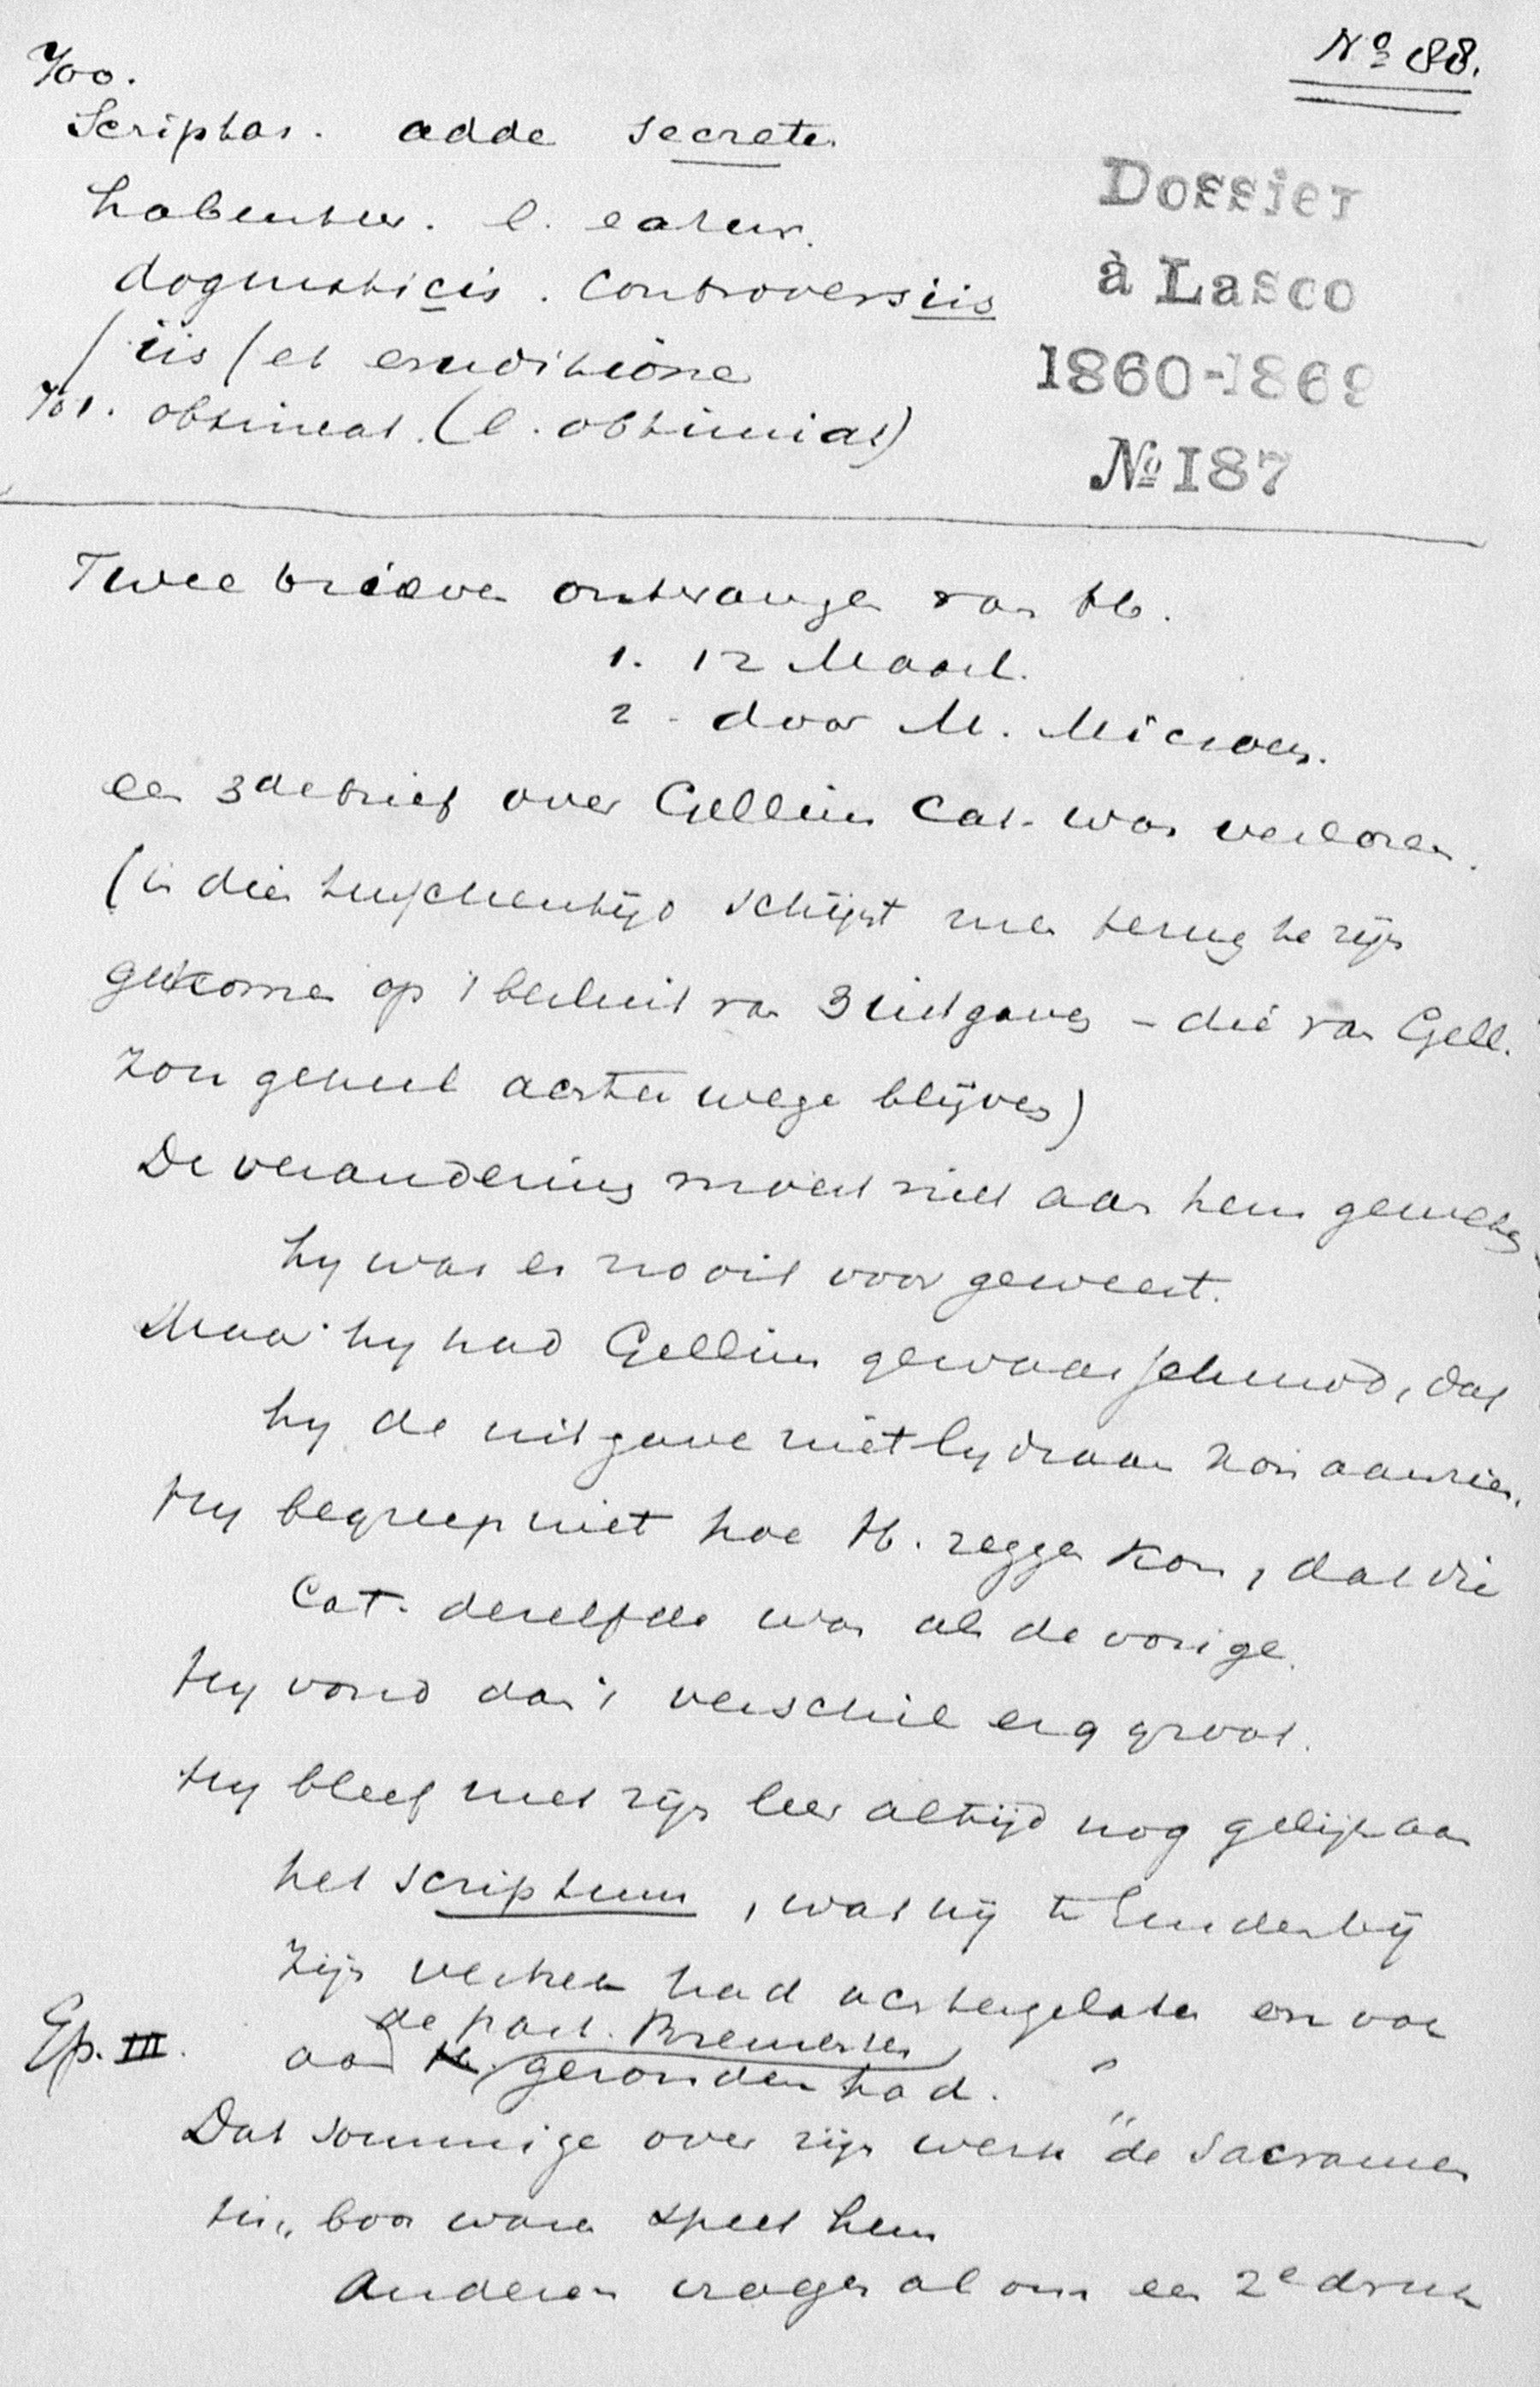 700.
No 88.
Scriptas. adde secreto
habentur. l. earum.
dogmaticis. Controversiis
/iis/ et eruditione
701. obtineat. (l. obtiniat)
Dossier
à Lasco
1860-1869
No 187
Twee brieven ontvangen van H.
1. 12 Maart.
2. door M. Micron.
een 3de brief over Gellius Cat. was verloren.
(in dien tusschentijd schijnt men terug te zijn
gekomen op 't besluit van 3 uitgaven – die van Gell.
zou geheel achterwege blijven)
De verandering moest niet aan hem geweten
hy was er nooit voor geweest.
Maar hy had Gellius gewaarschuwd, dat
hy de uitgave niet lydzaam kon aanzien.
Hy begreep niet hoe H. zeggen kon, dat die
Cat. dezelfde was als de vorige.
Hy vond dan 't verschil erg groot.
Hy bleef met zijn leer altijd nog gelijk aan
het scriptum, wat hij te Emden bij
zijn vertrek had achtergelaten en ook
Ep. III. aan H. de past. Bremenses gezonden had.
Dat sommige over zijn werk "de Sacramen
tis" boos waren speet hem
Anderen vragen al om een 2e druk